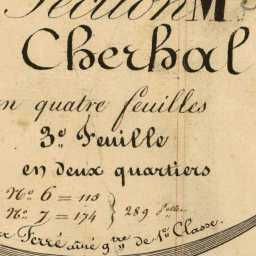 Section M
Cherhal
en quatre feuilles
3.e Feuille
en deux quartiers
N.o 6 = 115
N.o 7 = 174 } 289 p.elles
Ferré ainé g.tre de 1.re Classe.